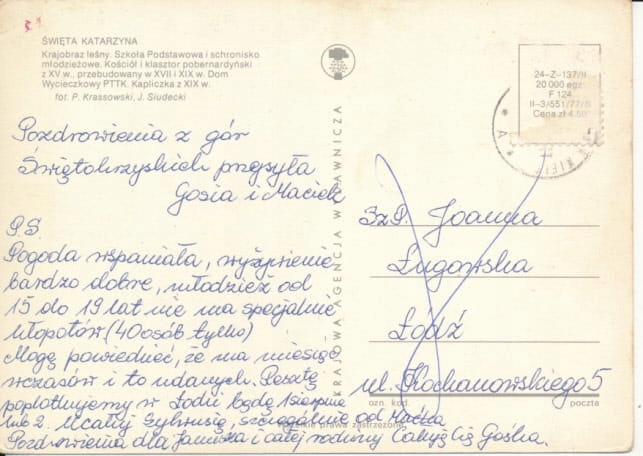 ŚWIĘTA KATARZYNA
Krajobraz leśny. Szkoła Podstawowa i schronisko
młodzieżowe. Kościół i klasztor pobernardyński
z XV w., przebudowany w XVII i XIX w. Dom
Wycieczkowy PTTK. Kapliczka z XIX w.
fot. P. Krassowski, J. Siudecki
24-Z-137/II
20 000 egz.
F 124
II-3/551/77/8
Cena zł 4.50
KRAJOWA AGENCJA WYDAWNICZA
Pozdrowienia z gór
Świętokrzyskich przesyła
Gosia i Maciek
P.S.
Pogoda wspaniała, wyżywienie
bardzo dobre, młodzież od
15 do 19 lat nie ma specjalnie
kłopotów (40 osób tylko)
Mogę powiedzieć, że ma miesiąc
wczasów i to udanych. Resztę
poplotkujemy w Łodzi będę 1 sierpnia
lub 2. Ucałuj Sylwusię, szczególnie od Maćka
Pozdrowienia dla Janusza i całej rodziny Całuję Cię Gośka.
Sz.P. Joanna
Ługowska
Łódź
ul. Kochanowskiego 5
ozn. kod. poczta
wszelkie prawa zastrzeżone